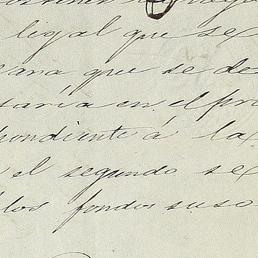 legal que se
ara que se de
taría en el pre
pondiente á la
el segundo se
los fondos suso